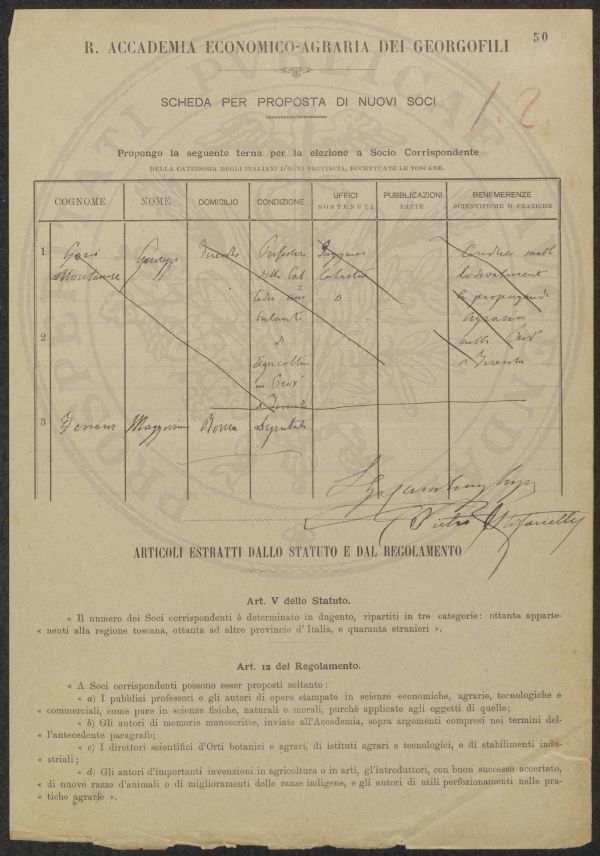 50
R. ACCADEMIA ECONOMICO-AGRARIA DEI GEORGOFILI
1.2.
SCHEDA PER PROPOSTA DI NUOVI SOCI
Propongo la seguente terna per la elezione a Socio Corrispondente
DELLA CATEGORIA DEGLI ITALIANI D'OGNI PROVINCIA, ECCETTUATE LE TOSCANE.
COGNOME NOME DOMICILIO CONDIZIONE UFFICI SOSTENUTI PUBBLICAZIONI FATTE BENEMERENZE SCIENTIFICHE O PRATICHE
1 Giuseppe Professore
della Cat
tedra am
bulante
2 di
Agricoltura
in Prov
3 Maggiorino Roma Deputato
la propaganda
agraria
nella Prov
Pietro Stefanelli
ARTICOLI ESTRATTI DALLO STATUTO E DAL REGOLAMENTO
Art. V dello Statuto.
« Il numero dei Soci corrispondenti è determinato in dugento, ripartiti in tre categorie: ottanta apparte-
« nenti alla regione toscana, ottanta ad altre provincie d'Italia, e quaranta stranieri ».
Art. 12 del Regolamento.
« A Soci corrispondenti possono esser proposti soltanto:
« a) I pubblici professori e gli autori di opere stampate in scienze economiche, agrarie, tecnologiche e
« commerciali, come pure in scienze fisiche, naturali e morali, purchè applicate agli oggetti di quelle;
« b) Gli autori di memorie manoscritte, inviate all'Accademia, sopra argomenti compresi nei termini del-
« l'antecedente paragrafo;
« c) I direttori scientifici d'Orti botanici e agrari, di istituti agrari e tecnologici, e di stabilimenti indu-
« striali;
« d) Gli autori d'importanti invenzioni in agricoltura o in arti, gl'introduttori, con buon successo accertato,
« di nuove razze d'animali o di miglioramenti delle razze indigene, e gli autori di utili perfezionamenti nelle pra-
« tiche agrarie ».